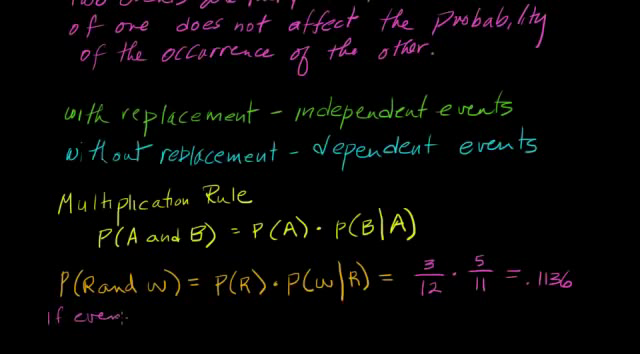 of one does not affect the probability
of the occurrence of the other.
with replacement - independent events
without reblacement - dependent events
Multiplication Rule
P(A and B) = P(A) · P(B|A)
P(R and W) = P(R) · P(W|R) = 3/12 · 5/11 = .1136
If